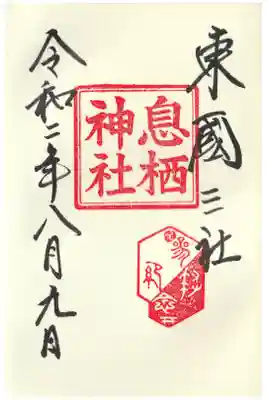 東國三社
息栖
神社
令和二年八月九日